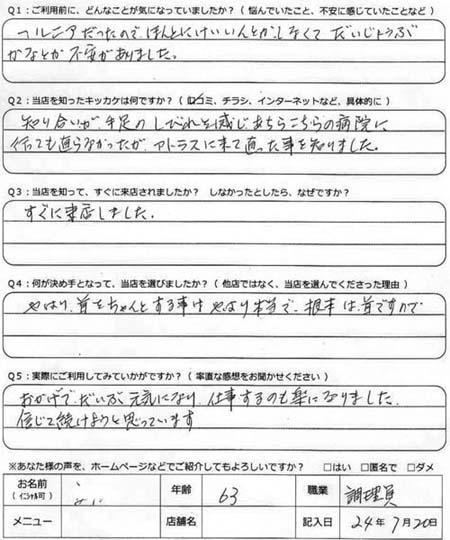 Q1：ご利用前に、どんなことが気になっていましたか？（ 悩んでいたこと、不安に感じていたことなど ）
ヘルニアだったので、ほんとにけいいんとかしなくて だいじょうぶ
かなとか不安がありました。
Q2：当店を知ったキッカケは何ですか？（ 口コミ、チラシ、インターネットなど、具体的に ）
知り合いが、手足のしびれを感じ、あちらこちらの病院に
行っても直らなかったが、アトラスに来て直った事を知りました。
Q3：当店を知って、すぐに来店されましたか？ しなかったとしたら、なぜですか？
すぐに来店しました。
Q4：何が決め手となって、当店を選びましたか？（ 他店ではなく、当店を選んでくださった理由 ）
やはり、首をちゃんとする事は やはり 本当で、根本は、首ですので
Q5：実際にご利用してみていかがですか？（ 率直な感想をお聞かせください ）
おかげで、だいぶ 元気になり、仕事するのも楽になりました。
信じて続けようと思っています
※あなた様の声を、ホームページなどでご紹介してもよろしいですか？ □はい □匿名で □ダメ
お名前 （イニシャル可） 年齢 63 職業 調理員
メニュー 店舗名 記入日 24年7月20日